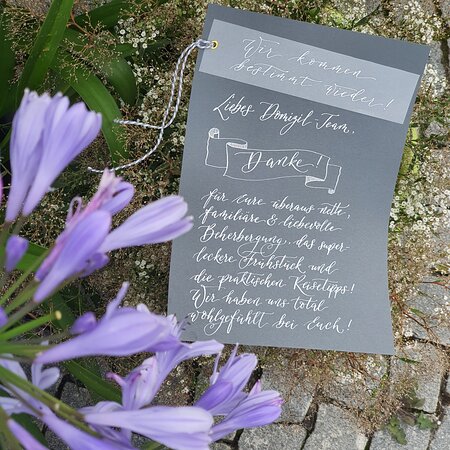 Wir kommen
bestimmt wieder!
Liebes Domizil Team,
Danke!
für eure überaus nette,
familiäre & liebevolle
Beherbergung, das super-
leckere Frühstück und
die praktischen Reisetipps!
Wir haben uns total
wohlgefühlt bei Euch!